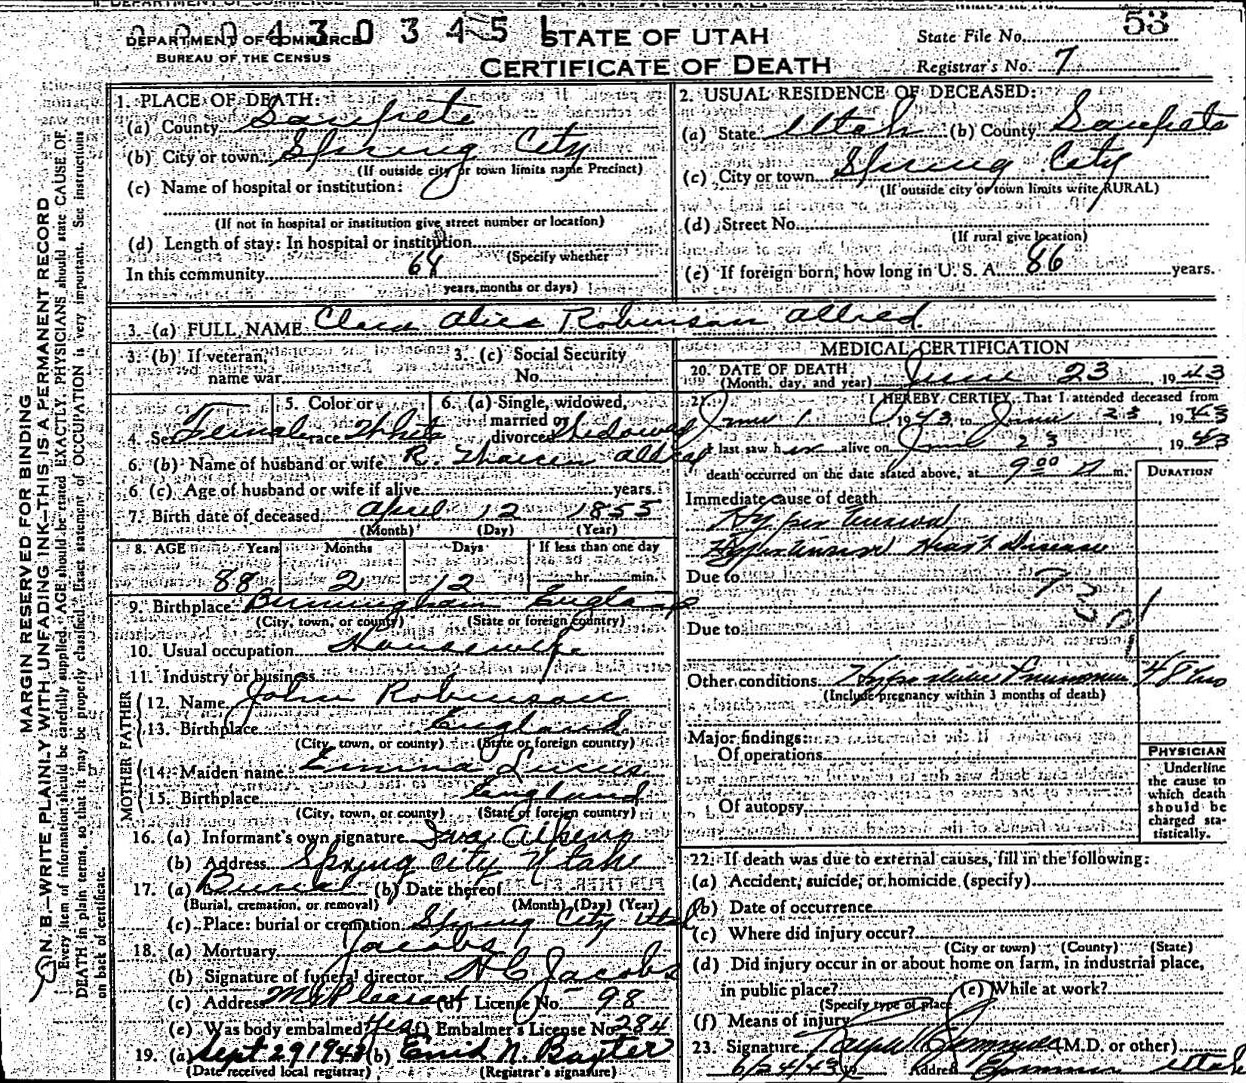 DEPARTMENT OF COMMERCE
BUREAU OF THE CENSUS
STATE OF UTAH
CERTIFICATE OF DEATH
State File No. 53
Registrar's No. 7
MARGIN RESERVED FOR BINDING
N. B.—WRITE PLAINLY WITH UNFADING INK—THIS IS A PERMANENT RECORD
Every item of information should be carefully supplied. AGE should be stated EXACTLY. PHYSICIANS should state CAUSE OF
DEATH in plain terms, so that it may be properly classified. Exact statement of OCCUPATION is very important. See instructions
on back of certificate.
1. PLACE OF DEATH:
(a) County Sanpete
(b) City or town Spring City
(If outside city or town limits name Precinct)
(c) Name of hospital or institution:
(If not in hospital or institution give street number or location)
(d) Length of stay: In hospital or institution
(Specify whether
In this community 68
years, months or days)
2. USUAL RESIDENCE OF DECEASED:
(a) State Utah (b) County Sanpete
(c) City or town Spring City
(If outside city or town limits write RURAL)
(d) Street No.
(If rural give location)
(e) If foreign born, how long in U. S. A. 86 years.
3. (a) FULL NAME Clara Alice Robinson Allred
3. (b) If veteran,
name war
3. (c) Social Security
No.
4. Sex Female
5. Color or
race White
6. (a) Single, widowed,
married or
divorced Widowed
6. (b) Name of husband or wife R. Allred
6 (c) Age of husband or wife if alive years.
7. Birth date of deceased April 12 1855
(Month) (Day) (Year)
8. AGE Years Months Days If less than one day
88 2 12 hr. min.
9. Birthplace Birmingham England
(City, town, or county) (State or foreign country)
10. Usual occupation Housewife
11. Industry or business
FATHER
12. Name John Robinson
13. Birthplace England
(City, town, or county) (State or foreign country)
MOTHER
14. Maiden name Emma Lucas
15. Birthplace England
(City, town, or county) (State or foreign country)
16. (a) Informant's own signature
(b) Address Spring City Utah
17. (a) Burial (b) Date thereof
(Burial, cremation, or removal) (Month) (Day) (Year)
(c) Place: burial or cremation Spring City Utah
18. (a) Mortuary Jacobs
(b) Signature of funeral director H C Jacobs
(c) Address Mt Pleasant (d) License No. 98
(e) Was body embalmed? Yes (f) Embalmer's License No. 284
19. (a) Sept 29 1943 (b) Enid N. Baxter
(Date received local registrar) (Registrar's signature)
MEDICAL CERTIFICATION
20. DATE OF DEATH
(Month, day, and year) June 23, 1943
21. I HEREBY CERTIFY, That I attended deceased from
June 1 1943 to June 23, 1943
I last saw her alive on June 23, 1943
death occurred on the date stated above, at 9:00 m.
DURATION
Immediate cause of death
Hypertension
Hypertension Heart Disease
Due to
Due to
Other conditions Hypostatic Pneumonia 48 hrs
(Include pregnancy within 3 months of death)
Major findings:
Of operations
Of autopsy
PHYSICIAN
Underline
the cause to
which death
should be
charged sta-
tistically.
22. If death was due to external causes, fill in the following:
(a) Accident, suicide, or homicide (specify)
(b) Date of occurrence
(c) Where did injury occur?
(City or town) (County) (State)
(d) Did injury occur in or about home on farm, in industrial place,
in public place? (e) While at work?
(Specify type of place)
(f) Means of injury
23. Signature Ralph (M.D. or other)
6/24/43 Address Utah